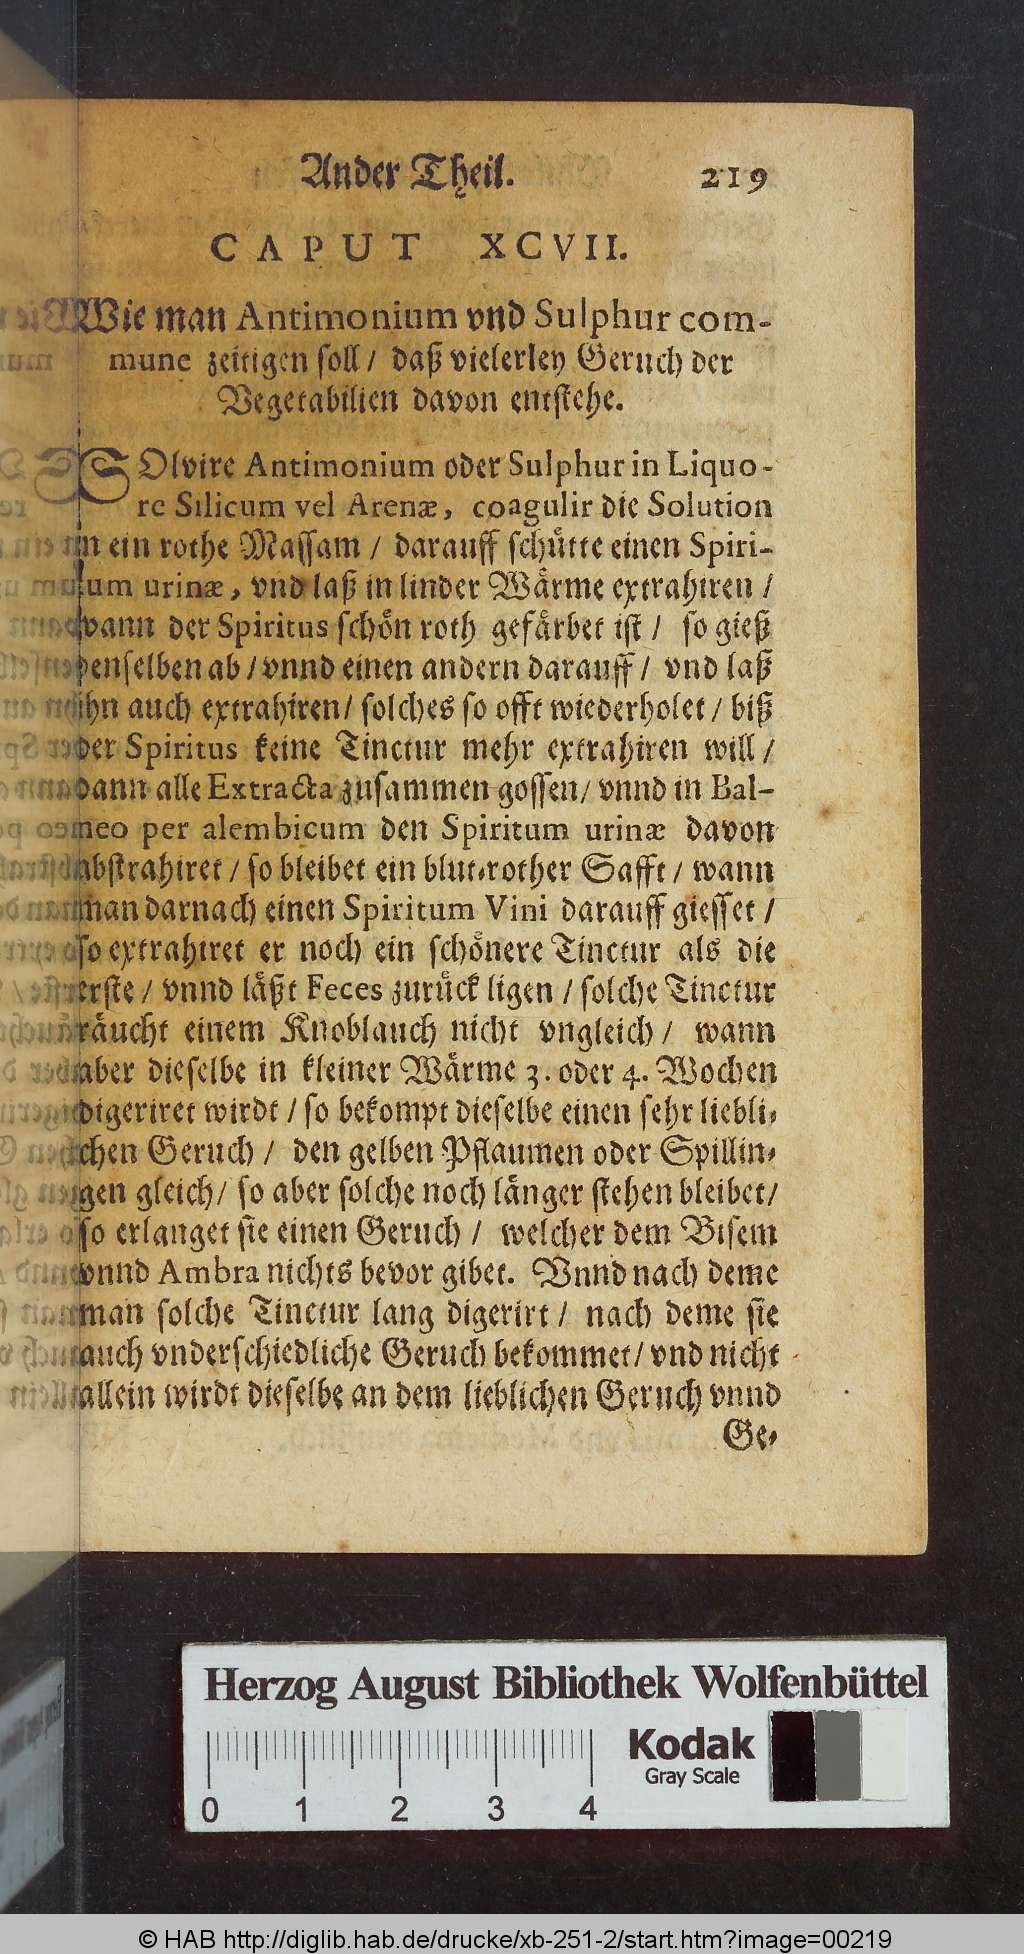 Ander Theil. 219
CAPUT XCVII.
Wie man Antimonium vnd Sulphur com-
mune zeitigen soll / daß vielerley Geruch der
Vegetabilien davon entstehe.
SOlvire Antimonium oder Sulphur in Liquo-
re Silicum vel Arenæ, coagulir die Solution
in ein rothe Massam / darauff schütte einen Spiri-
tum urinæ, vnd laß in linder Wärme extrahiren /
wann der Spiritus schön roth gefärbet ist / so gieß
denselben ab / vnnd einen andern darauff / vnd laß
ihn auch extrahiren / solches so offt wiederholet / biß
der Spiritus keine Tinctur mehr extrahiren will /
dann alle Extracta zusammen gossen / vnnd in Bal-
neo per alembicum den Spiritum urinæ davon
abstrahiret / so bleibet ein blut-rother Safft / wann
man darnach einen Spiritum Vini darauff giesset /
so extrahiret er noch ein schönere Tinctur als die
erste / vnnd läßt Feces zurück ligen / solche Tinctur
räucht einem Knoblauch nicht vngleich / wann
aber dieselbe in kleiner Wärme 3. oder 4. Wochen
digeriret wirdt / so bekompt dieselbe einen sehr liebli-
chen Geruch / den gelben Pflaumen oder Spillin-
gen gleich / so aber solche noch länger stehen bleibet /
so erlanget sie einen Geruch / welcher dem Bisem
vnnd Ambra nichts bevor gibet. Vnnd nach deme
man solche Tinctur lang digerirt / nach deme sie
auch vnderschiedliche Geruch bekommet / vnd nicht
allein wirdt dieselbe an dem lieblichen Geruch vnnd
Ge-
Herzog August Bibliothek Wolfenbüttel
Kodak
Gray Scale
0 1 2 3 4
© HAB http://diglib.hab.de/drucke/xb-251-2/start.htm?image=00219